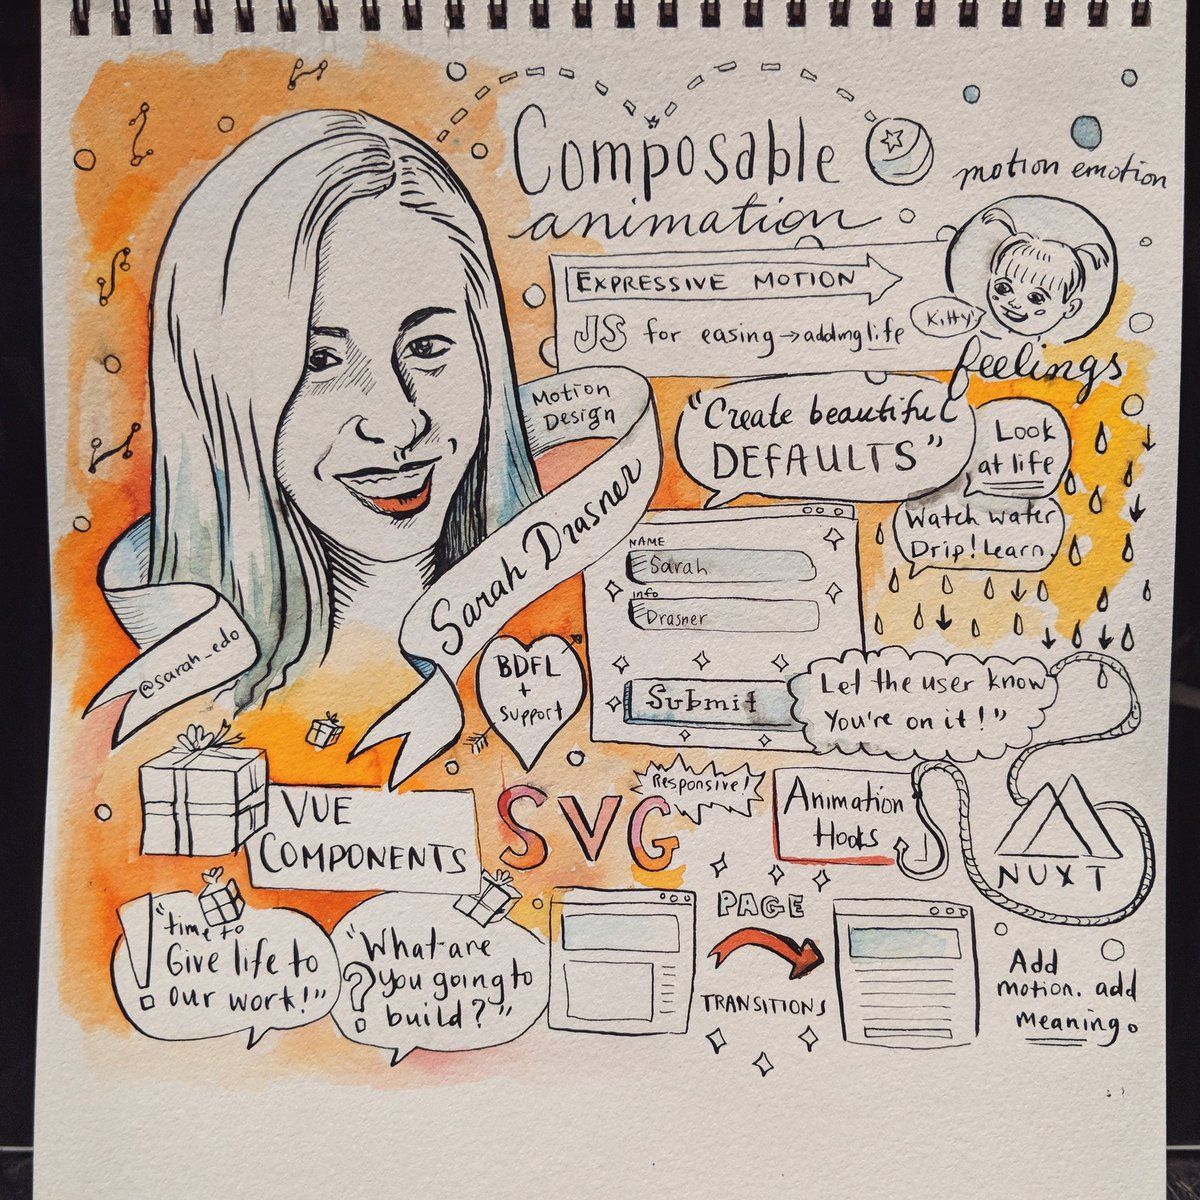 Composable
animation
motion emotion
EXPRESSIVE MOTION
JS for easing → adding life
Kitty!
feelings
Motion
Design
Sarah Drasner
@sarah_edo
"Create beautiful
DEFAULTS"
Look
at life
Watch water
Drip! Learn.
NAME
Sarah
info
Drasner
Submit
Let the user know
You're on it!"
BDFL
+
support
VUE
COMPONENTS
SVG
Responsive!
Animation
Hooks
NUXT
"time to
Give life to
our work!"
"What are
you going to
build?"
PAGE
TRANSITIONS
Add
motion. add
meaning.